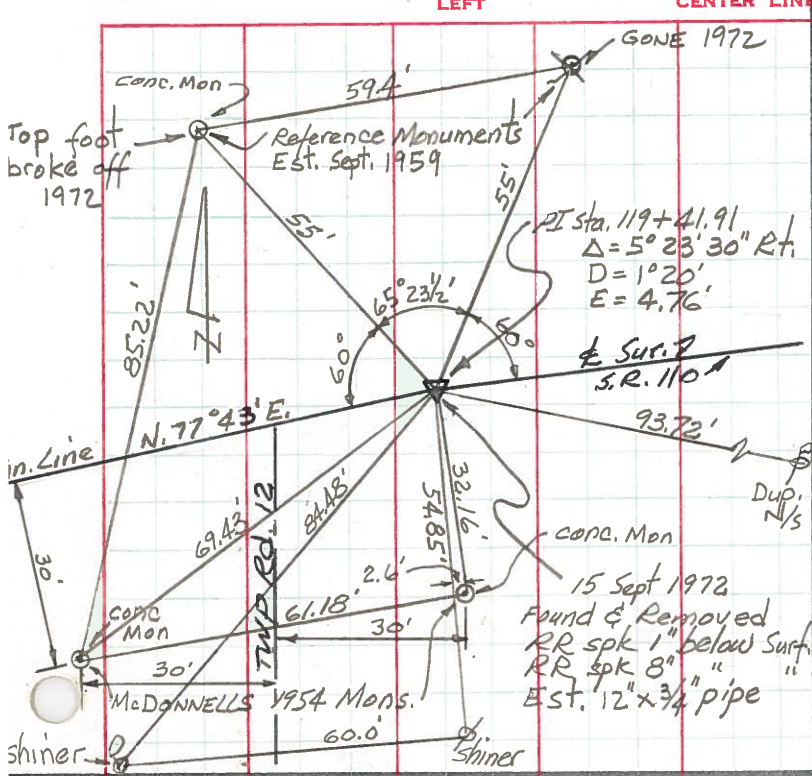 LEFT
CENTER LINE
GONE 1972
Conc. Mon
59.4'
Top foot
broke off
1972
Reference Monuments
Est. Sept. 1959
55'
55'
PI Sta. 119+41.91
Δ = 5° 23' 30" Rt.
D = 1° 20'
E = 4.76'
85.22'
N
60°
65° 23 1/2'
60°
℄ Sur. 7
S.R. 110
N. 77° 43' E.
in. Line
93.72'
Dup.
N/s
30'
69.43'
84.48'
TWP Rd. 12
32.16'
54.85'
2.6'
conc. Mon
61.18'
30'
conc
Mon
15 Sept 1972
Found & Removed
RR spk 1" below Surf.
RR spk 8" " "
Est. 12" x 3/4" pipe
30'
McDONNELLS 1954 Mons.
60.0'
shiner
Shiner